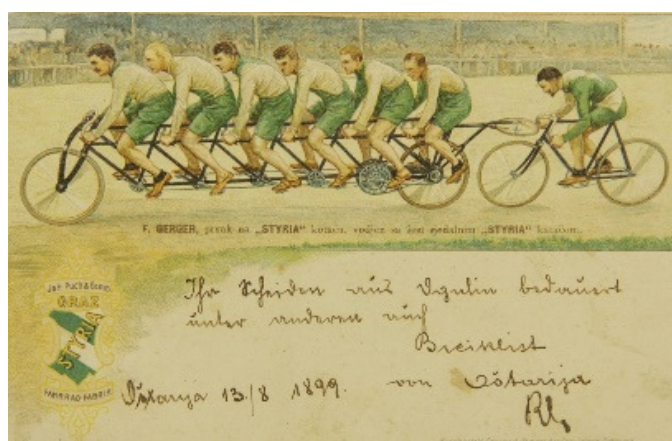 F. GERGER, prvak na „STYRIA“ kotaču, vodjen sa šest sjedalnim „STYRIA“ kotačom.
Joh. Puch & Comp.
GRAZ
STYRIA
FAHRRAD FABRIK
Ihr Scheiden aus Ogulin bedauert
unter anderen auch
Biciklist
13./8 1899. von Oštarija